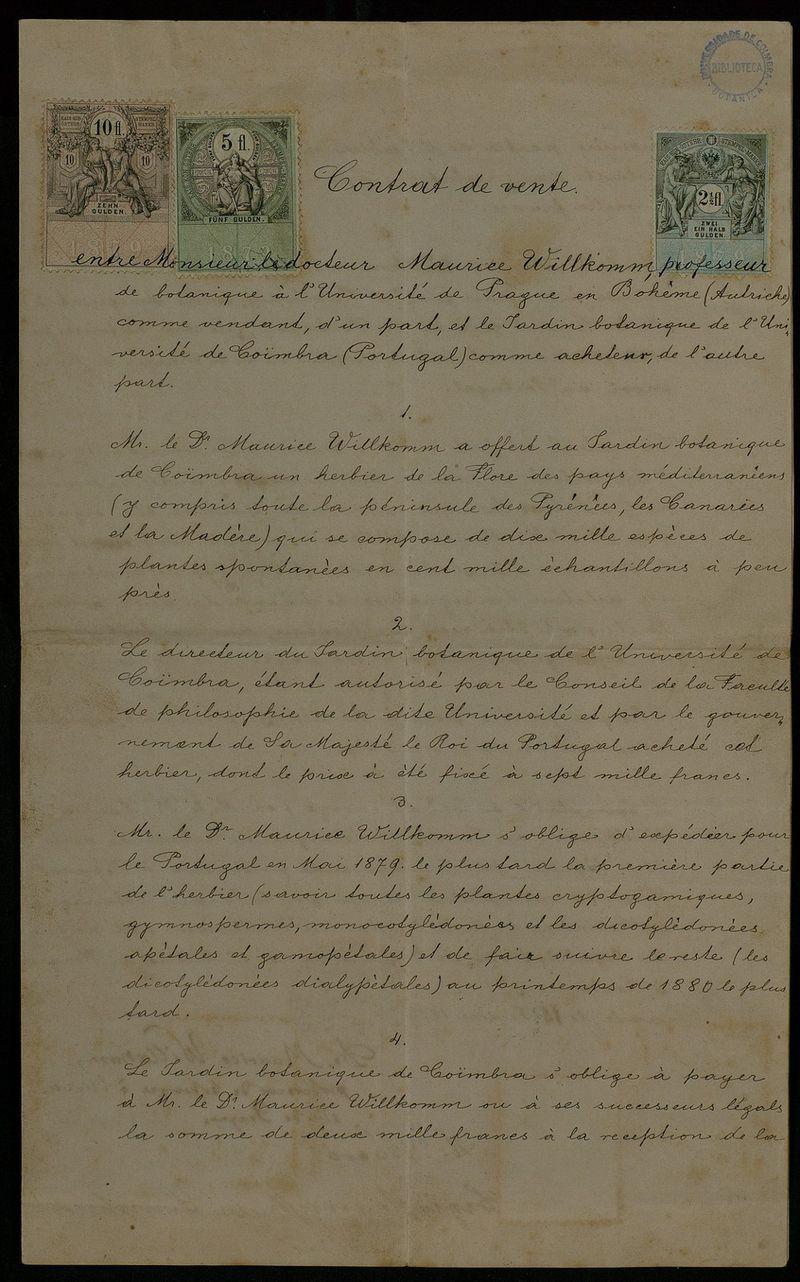 UNIVERSIDADE DE COIMBRA
BIBLIOTECA
BOTANICA
10 fl.
10 10
ZEHN
GULDEN.
1879
5 fl.
FÜNF GULDEN.
2½ fl.
ZWEI
EIN HALB
GULDEN.
Contrat de vente.
entre Monsieur le docteur Maurice Willkomm, professeur
de botanique à l'Université de Prague en Bohême (Autriche)
comme vendant, d'un part, et le Jardin botanique de l'Uni-
versité de Coïmbra (Portugal) comme acheteur, de l'autre
part.
1.
Mr. le Dr. Maurice Willkomm a offert au Jardin botanique
de Coïmbra un herbier de la Flore des pays méditerranéens
(y compris toute la péninsule des Pyrénées, les Canaries
et la Madère) qui se compose de dix mille espèces de
plantes spontanées en cent mille échantillons à peu
près.
2.
Le directeur du Jardin botanique de l'Université de
Coïmbra, étant autorisé par le Conseil de la Faculté
de philosophie de la dite Université et par le gouver-
nement de Sa Majesté le Roi du Portugal acheté cet
herbier, dont le prix à été fixé à sept mille francs.
3.
Mr. le Dr. Maurice Willkomm s'oblige d'expédier pour
le Portugal en Mai 1879. le plus tard la première partie
de l'herbier (savoir toutes les plantes cryptogamiques,
gymnospermes, monocotylédonées et les dicotylédonées
apétales et gamopétales) et de faire suivre le reste (les
dicotylédonées dialypétales) au printemps de 1880 le plus
tard.
4.
Le Jardin botanique de Coïmbra s'oblige à payer
à Mr. le Dr. Maurice Willkomm ou à ses successeurs légals
la somme de deux mille francs à la reception de la